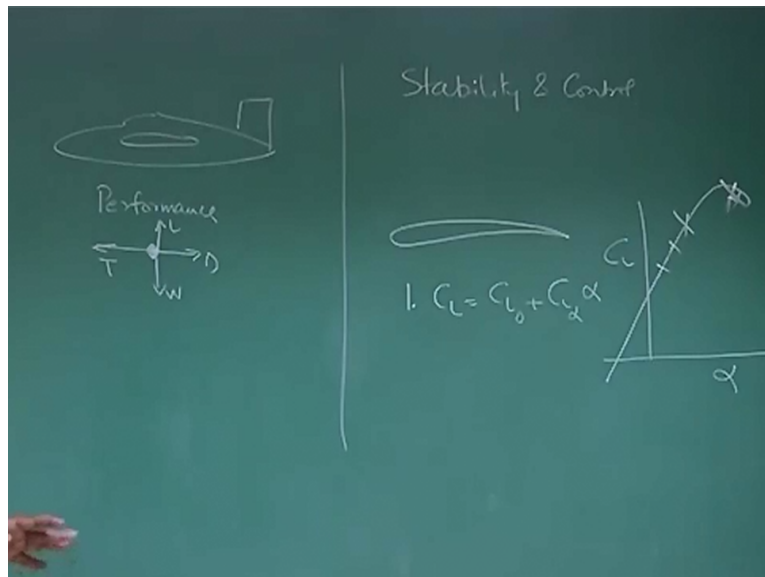 Performance
L
T D
W
Stability & Control
1. C_L = C_L₀ + C_Lα α
C_L
α